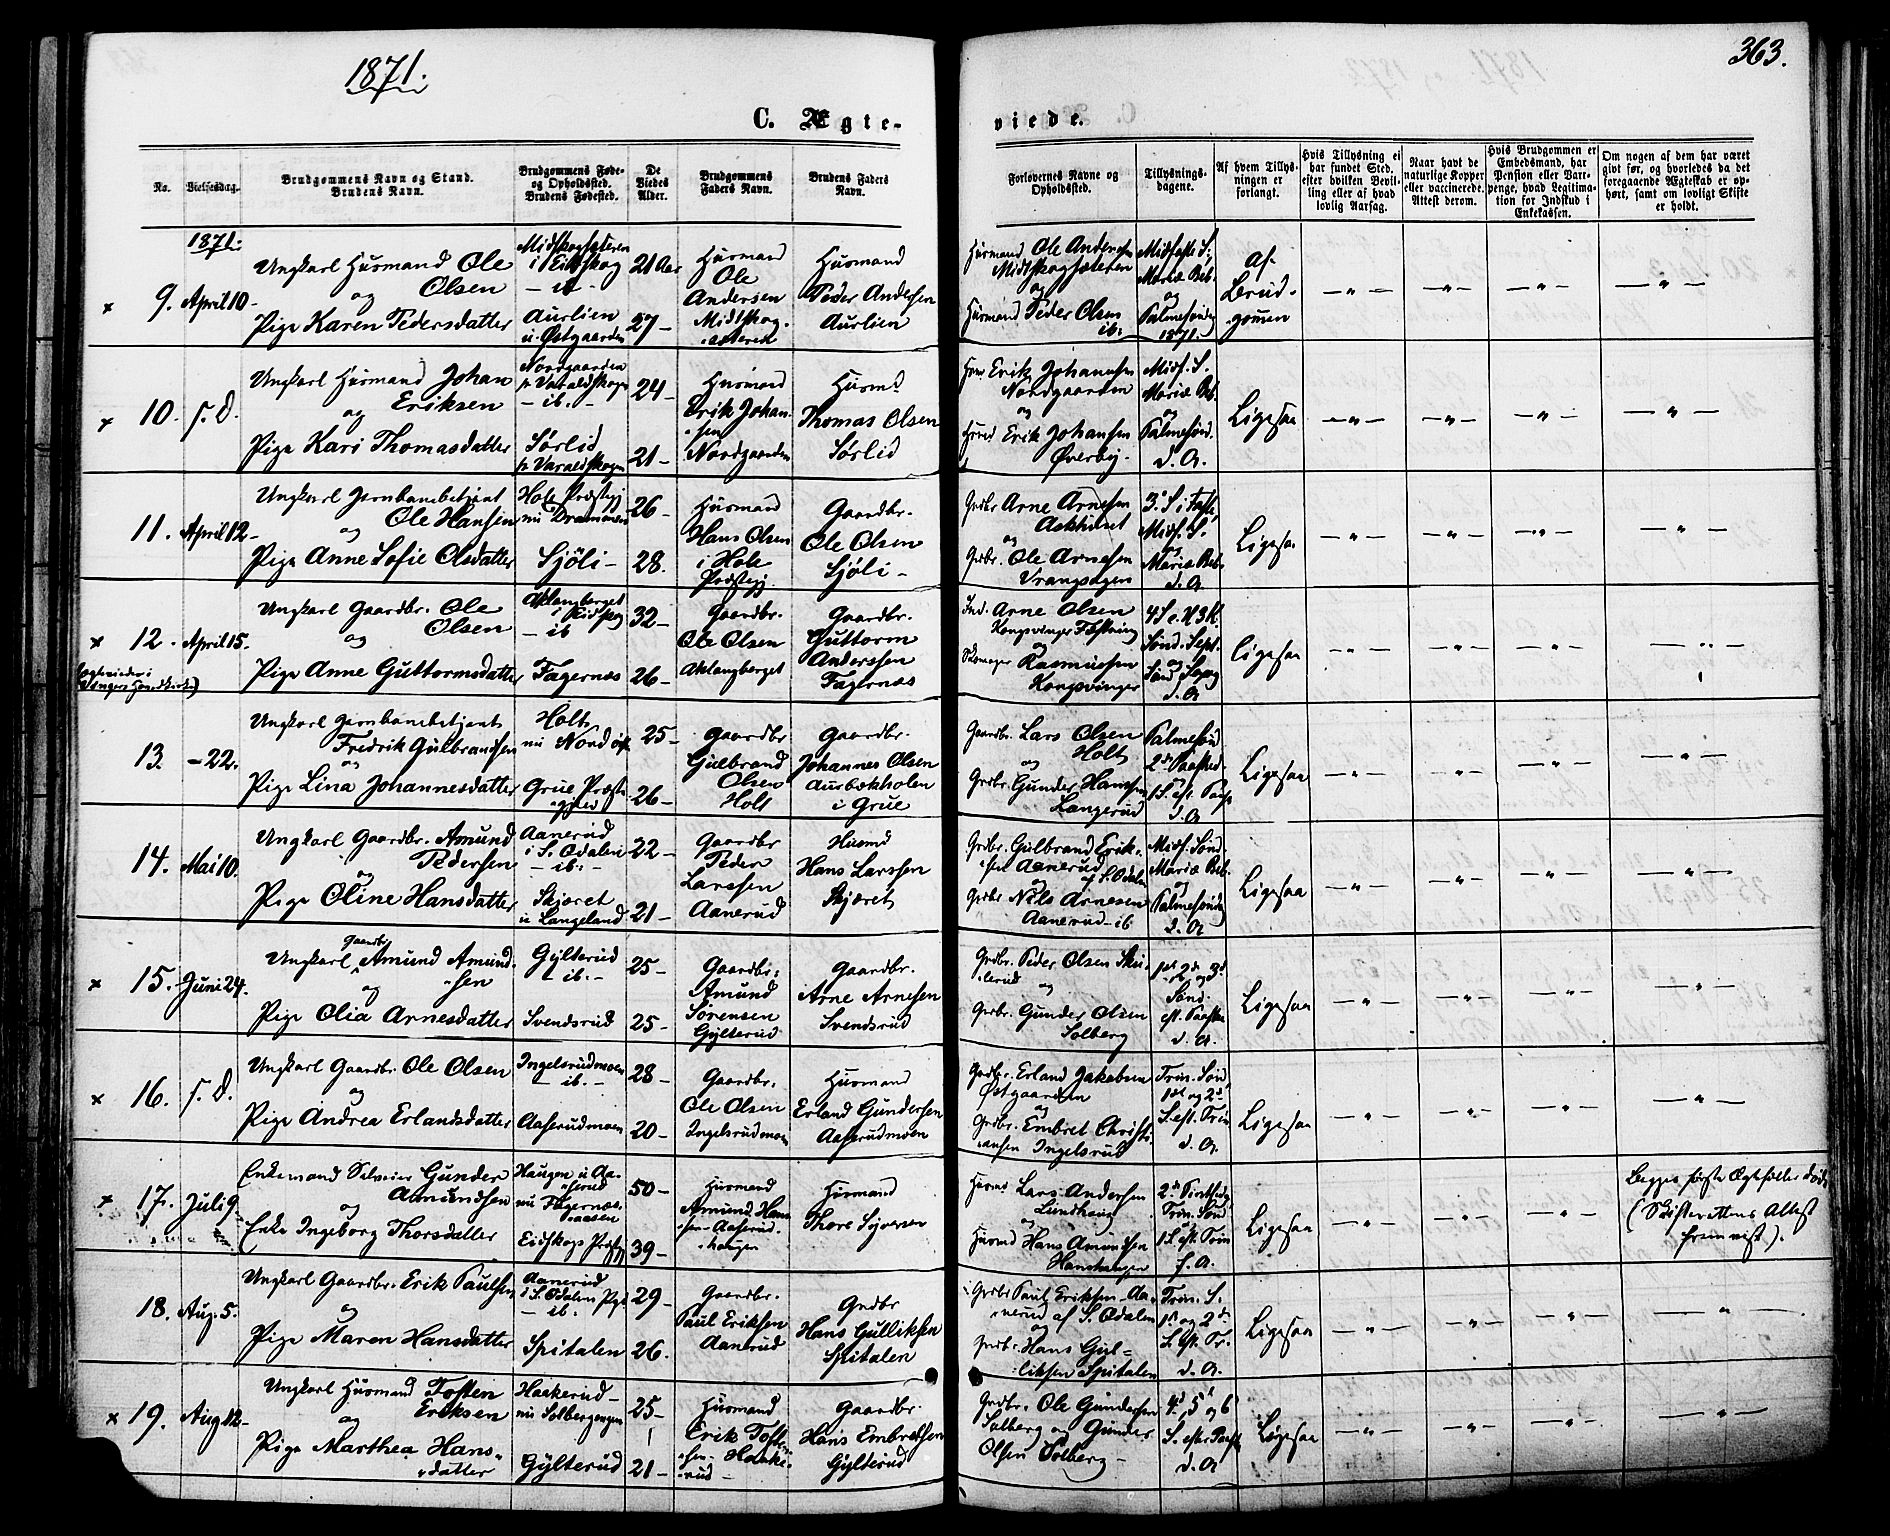 1871.
363.
C. Ægte-
viede.
No.
Vielsesdag.
Brudgommens Navn og Stand.
Brudens Navn.
Brudgommens Føde-
og Opholdssted.
Brudens Fødested.
De
Viedes
Alder.
Brudgommens
Faders Navn.
Brudens Faders
Navn.
Forlovernes Navne og
Opholdssted.
Tillysnings-
dagene.
Af hvem Tillys-
ningen er
forlangt.
Hvis Tillysning ei
har fundet Sted,
efter hvilken Bevil-
ling eller af hvad
lovlig Aarsag.
Naar havt de
naturlige Kopper
eller vaccinerede.
Attest derom.
Hvis Brudgommen er
Embedsmand, har
Pension eller Vart-
penge, hvad Legitima-
tion for Indskud i
Enkekassen.
Om nogen af dem har været
givt før, og hvorledes da det
foregaaende Ægteskab er op-
hørt, samt om lovligt Skifte
er holdt.
1871.
× 9. April 10-
Ungkarl Husmand Ole
Olsen
og
Pige Karen Pedersdatter
Midtskogsæteren
i Eidskog
- ib -
Aurlien
u. Østgaarden
21 Aar
27 -
Husmand
Ole
Andersen
Midtskog-
sæteren
Husmand
Peder Andersen
Aurlien
Husmand Ole Andersen
Midtskogsæteren
og
Husmand Peder Olsen
ib:
Midfaste S.
Mariæ Beb.
og
Palmesøndag
1871.
af
Brud-
gommen
- " - - " - - " - - " -
× 10. s. D.
Ungkarl Husmand Johan
Eriksen
og
Pige Kari Thomasdatter
Nordgaarden
p. Varaldskogen
- ib. -
Sørlid
p. Varaldskogen
24 -
21 -
Husmand
Erik Johan-
sen
Nordgaarden
Husmd
Thomas Olsen
Sørlid
Hsm. Erik Johannsen
Nordgaarden
og
Husmd Erik Johansen
Øverby.
Midf. S.
Mariæ Beb.
og
Palmesønd.
d. A.
Ligesaa
- " - - " - - " - - " -
11. April 12-
Ungkarl Jernbanebetjent
Ole Hansen
og
Pige Anne Sofie Olsdatter
Hole Præstegj
nu Drammen
Sjöli -
26 -
28.
Husmand
Hans Olsen
i Hole
Præstegj.
Gaardbr.
Ole Olsen
Sjöli -
Grdbr Arne Arnesen
Askhuset
og
Grdbr. Ole Arnesen
Vrangsagen
3' S. i Faste,
Midf. S.
og
Mariæ Beb.
d. A
Ligesaa
- " - - " - - " - - " -
× 12. April 15.
Ungkarl Gaardbr. Ole
Olsen
og
Pige Anne Guttormsdatter
Aklangberget
i Eidskog
- ib
Fagernæs
32 -
26 -
Gaardbr.
Ole Olsen
Aklangberget
Gaardbr.
Guttorm
Anderssen
Fagernæs
Ind. Arne Olsen
Kongsvinger Fæstning
og
Skomager Rasmussen
Kongsvinger
4 S. e. H 3 K.
Sønd. Sept.
og
Sønd. Sexag
d. A
Ligesaa
- " - - " - - " - "
13. - 22.
Ungkarl Jernbanebetjent
Fredrik Gulbrandsen
og
Pige Lina Johannesdatter
Holt
nu Nord
Grue Præste-
gjeld
25 -
26 -
Gaardbr
Gulbrand
Olsen
Holt
Gaardbr.
Johannes Olsen
Aurbækholen
i Grue
Gaardbr. Lars Olsen
Holt
og
Grdbr. Gunder Hansen
Langerud
Palmesønd
2den Paasked.
1 S. eft. Paaske
d. A
Ligesaa
- " - - " - - " - - " -
14. Mai 10.
Ungkarl Gaardbr. Amund
Pedersen
og
Pige Oline Hansdatter
Aanerud
i S. Odalen
- ib: -
Skjæret
u. Langeland
22 -
21 -
Gaardbr
Peder
Larssen
Aanerud
Husmd
Hans Larssen
Skjæret
Grdbr. Gulbrand Erik-
sen Aanerud
og af S. Odalen
Grdbr Nils Arnesen
Aanerud ib
Midf. Sønd
Mariæ Beb.
og
Palmesøndag
d. A
Ligesaa
- " - - " - - " - - " -
× 15. Juni 24.
Gaardbr
Ungkarl Amund Amund-
sen
og
Pige Olia Arnesdatter
Gylterud
- ib: -
Svendsrud
25 -
25 -
Gaardbr.
Amund
Sørensen
Gylterud
Gaardbr.
Arne Arnesen
Svendsrud
Grdbr. Peder Olsen Sku-
lerud
og
Grdbr. Gunder Olsen
Solberg
1ste 2den og 3d
Sønd.
eft. Paaske
d. A.
Ligesaa
- " - - " - - " - - " -
× 16. s. D.
Ungkarl Gaardbr. Ole Olsen
og
Pige Andrea Erlandsdatter
Ingelsrudmoen
- ib. -
Aaserudmoen
28 -
20 -
Gaardbr.
Ole Olsen
Ingelsrudmoen
Husmand
Erland Gundersen
Aaserudmoen
Grdbr. Erland Jakobsen
Østgaarden
og
Grdbr. Embret Christi-
ansen Ingelsrud
Trin. Sønd
1ste og 2d
S. eft. Trin
d. A.
Ligesaa
- " - - " - - " - - " -
× 17. Juli 9
Enkemand Selveier Gunder
Aamundsen
og
Enke Ingeborg Thorsdatter
Haugen u Aa-
serud
nu Fagernæs-
aasen
Eidskogs Præstgj
50 -
39 -
Husmand
Amund Han-
sen Aaserud-
haugen
Husmand
Thore Syversen
Husmd Lars Andersen
Lundhaug
og
Husmd Hans Amundsen
Hanshaugen
2den Pintsedag
Trin. Sønd
og
1 S. eft. Trin
s. A.
Ligesaa
- " - - " - - " -
Begges første Ægtefæller døde
(Skifterettens Attest
fremvist).
18. Aug. 5.
Ungkarl Gaardbr. Erik Paulsen
og
Pige Maren Hansdatter
Aanerud
i S. Odalen Pgj
- ib. -
Spitalen
29 -
26.
Gaardbr.
Paul Eriksen
Aanerud
Grdbr
Hans Gulliksen
Spitalen
Grdbr Paul Eriksen Aa-
nerud af S. Odalen
og
Grdbr. Hans Gul-
liksen Spitalen
Trin. S.
1ste og 2d
S. eft. Tr.
d. A.
Ligesaa
- " - - " - - " - - " -
× 19. Aug 12-
Ungkarl Husmand Tosten
Eriksen
og
Pige Marthea Hans-
datter
Haakerud
nu Solbergengen
Gylterud
25 -
21 -
Husmand
Erik Tost-
sen Haake-
rud -
Gaardbr.
Hans Embretsen
Gylterud
Grdbr. Ole Gundersen
Solberg og Gunder
Olsen Solberg -
4d, 5 og 6
S. efter Paaske
d. A
Ligesaa
- " - - " - - " - - " -